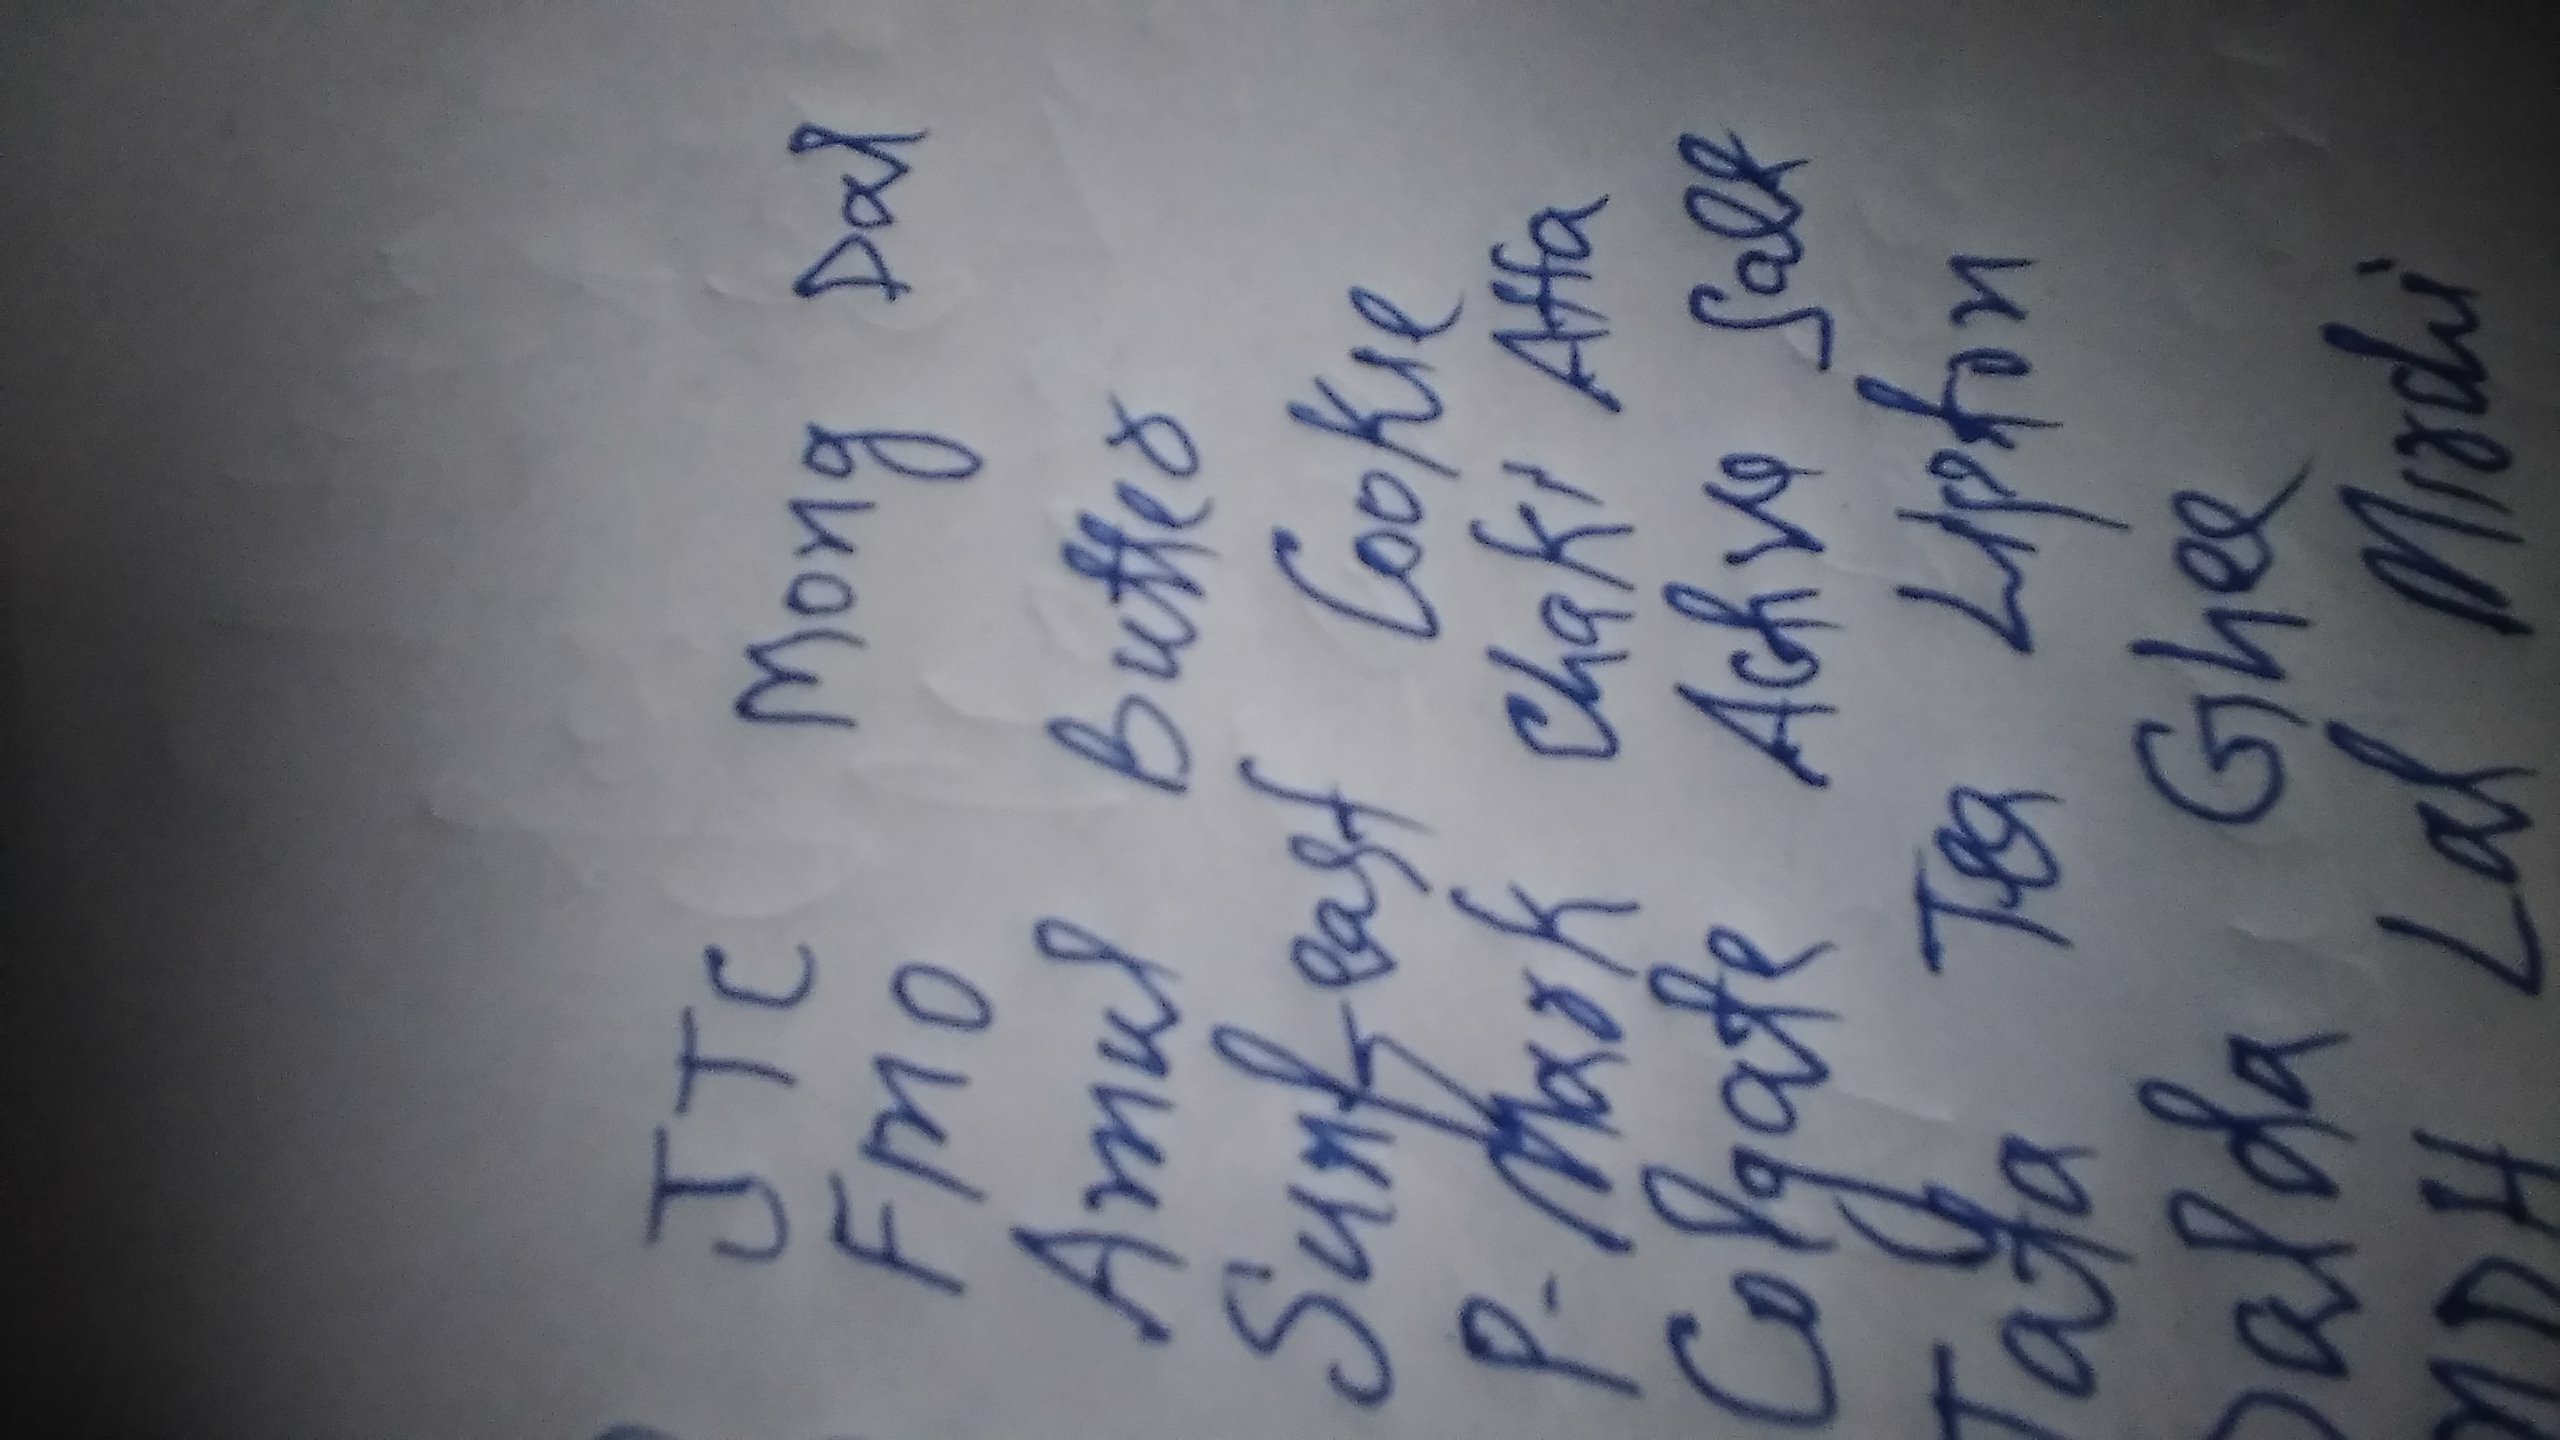 JTC
FMO Mong Dal
Amul Butter
Sunfeast Cookie
P-Mark Chaki Atta
Colgate Active Salt
Tata Tea Lipton
Dalda Ghee
MDH Lal Mirchi